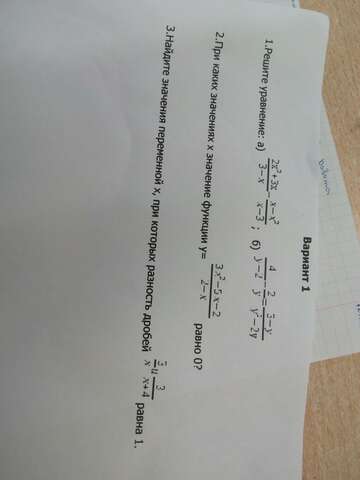 Вариант 1
1.Решите уравнение: а) (2x²+3x)/(3−x) = (x−x²)/(x−3); б) 4/(y−2) − 2/y = (3−y)/(y²−2y)
2.При каких значениях х значение функции у= (3x²−5x−2)/(2−x) равно 0?
3.Найдите значения переменной х, при которых разность дробей 3/x и 3/(x+4) равна 1.